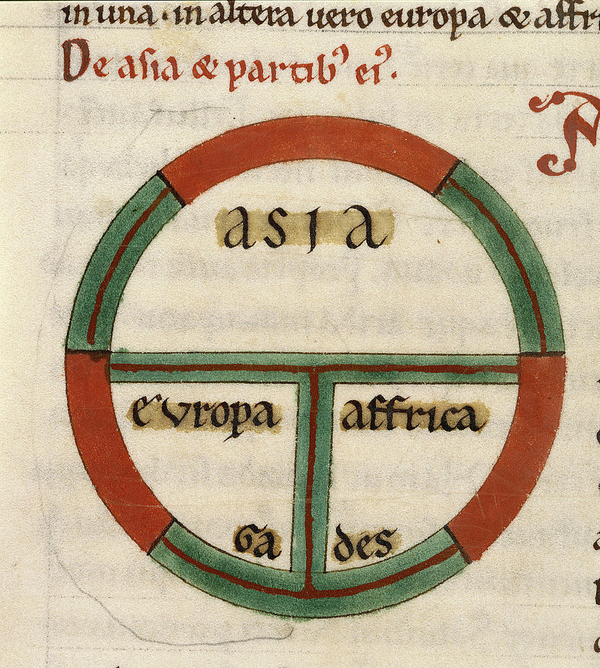 in una · in altera uero europa & affri
De asia & partibꝰ eiꝰ.
asia
europa affrica
Ga des